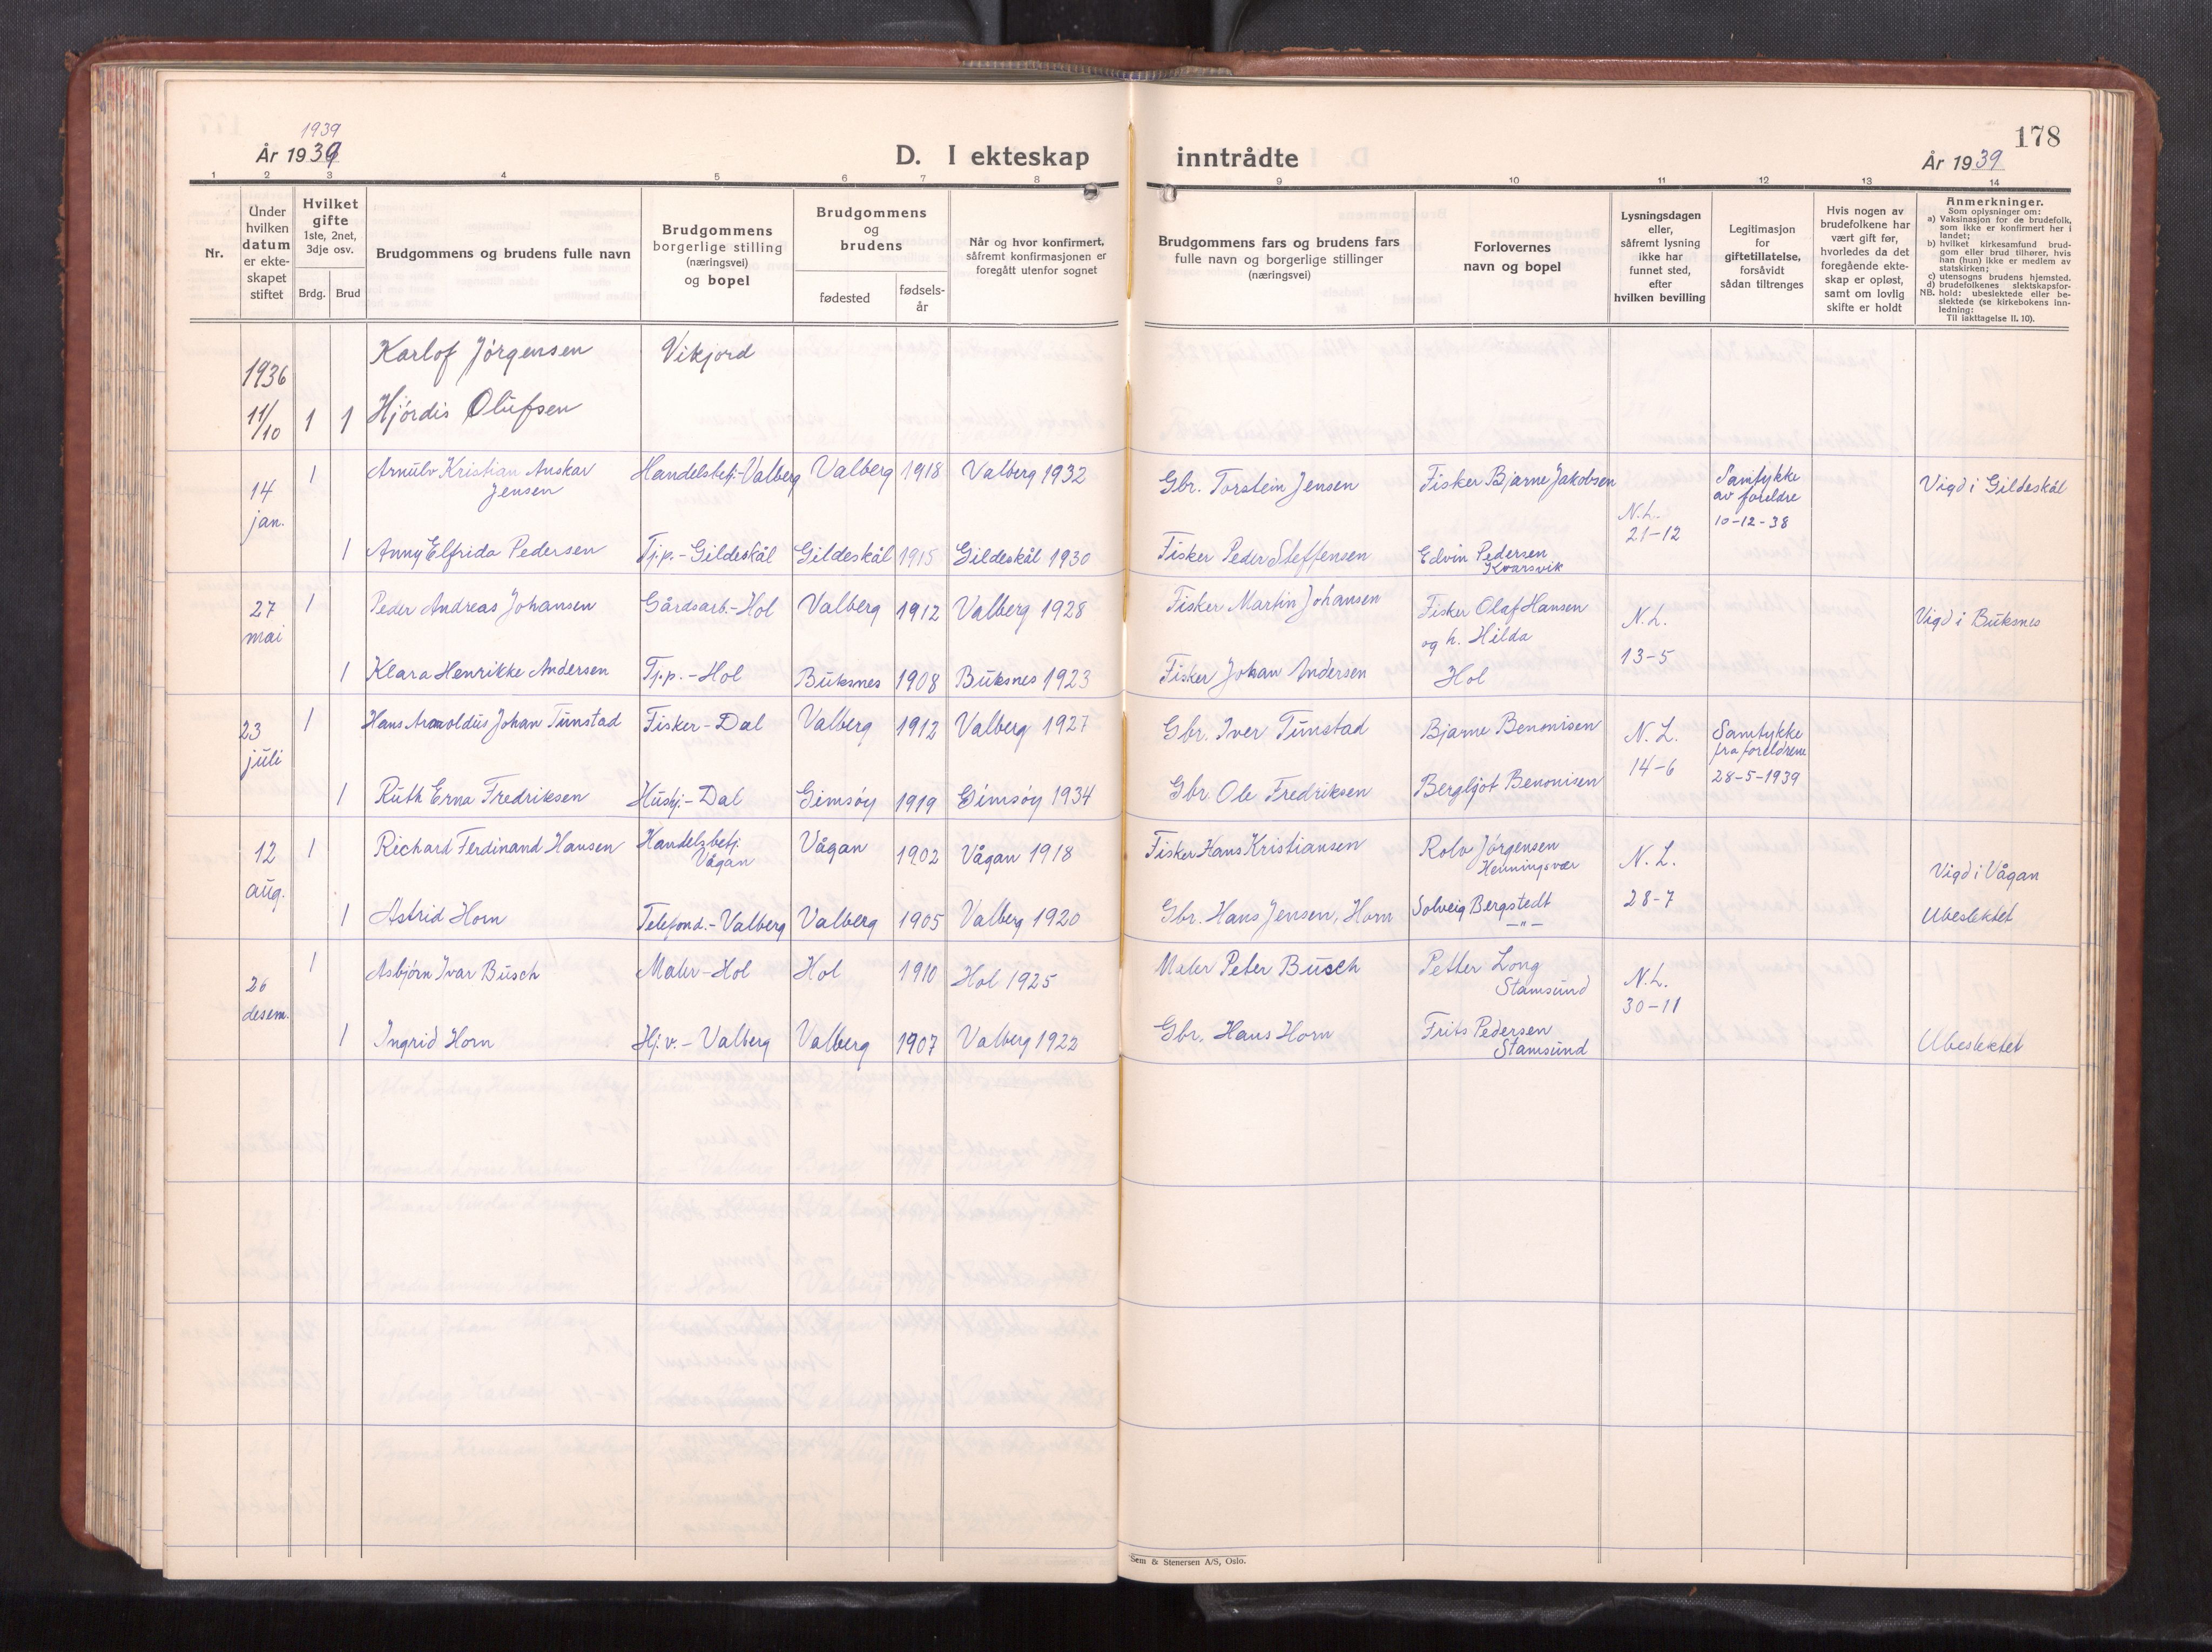 1939
År 1939
D. I ekteskap inntrådte
178
År 1939
1 2 3 4 5 6 7 8 9 10 11 12 13 14
Nr.
Under hvilken datum er ekteskapet stiftet
Hvilket gifte
1ste, 2net, 3dje osv.
Brdg. Brud
Brudgommens og brudens fulle navn
Brudgommens borgerlige stilling (næringsvei) og bopel
Brudgommens og brudens
fødested
fødselsår
Når og hvor konfirmert, såfremt konfirmasjonen er foregått utenfor sognet
Brudgommens fars og brudens fars fulle navn og borgerlige stillinger (næringsvei)
Forlovernes navn og bopel
Lysningsdagen eller, såfremt lysning ikke har funnet sted, efter hvilken bevilling
Legitimasjon for giftetillatelse, forsåvidt sådan tiltrenges
Hvis nogen av brudefolkene har vært gift før, hvorledes da det foregående ekteskap er opløst, samt om lovlig skifte er holdt
Anmerkninger.
Som oplysninger om:
a) Vaksinasjon for de brudefolk, som ikke er konfirmert her i landet;
b) hvilket kirkesamfund brudgom eller brud tilhører, hvis han (hun) ikke er medlem av statskirken;
c) utensogns brudens hjemsted.
d) brudefolkenes slektskapsforhold: ubeslektede eller beslektede (se kirkebokens innledning:
NB.
Til iakttagelse II. 10).
1936
11/10 1 1
Karlof Jörgensen Vikjord
Hjördis Olufsen
14 jan.
1 Arnulv Kristian Anskar Jensen Handelsbetj.-Valberg Valberg 1918 Valberg 1932 Gbr. Torstein Jensen Fisker Bjarne Jakobsen N.L. 21-12 Samtykke av foreldre 10-12-38 Vigd i Gildeskål
1 Anny Elfrida Pedersen Tj.p.-Gildeskål Gildeskål 1915 Gildeskål 1930 Fisker Peder Steffensen Edvin Pedersen Kvarsvik
27 mai
1 Peder Andreas Johansen Gårdsarb.-Hol Valberg 1912 Valberg 1928 Fisker Martin Johansen Fisker Olaf Hansen og h. Hilda N.L. Vigd i Buksnes
1 Klara Henrikke Andersen Tj.p.-Hol Buksnes 1908 Buksnes 1923 Fisker Johan Andersen Hol 13-5
23 juli
1 Hans Arnoldus Johan Tunstad Fisker-Dal Valberg 1912 Valberg 1927 Gbr. Iver Tunstad Bjarne Benonisen N.L. 14-6 Samtykke fra foreldrene 28-5-1939
1 Ruth Erna Fredriksen Hushj.-Dal Gimsöy 1919 Gimsöy 1934 Gbr Ole Fredriksen Bergljot Benonisen
12 aug.
1 Richard Ferdinand Hansen Handelsbetj. Vågan Vågan 1902 Vågan 1918 Fisker Hans Kristiansen Rolv Jörgensen Henningsvær N.L. Vigd i Vågan
1 Astrid Horn Telefond.-Valberg Valberg 1905 Valberg 1920 Gbr. Hans Jensen, Horn Solveig Bergstedt -"- 28-7 Ubeslektet
26 desem.
1 Asbjørn Ivar Busch Maler-Hol Hol 1910 Hol 1925 Maler Peter Busch Petter Long Stamsund N.L. 30-11
1 Ingrid Horn Hj.v.-Valberg Valberg 1907 Valberg 1922 Gbr. Hans Horn Frits Pedersen Stamsund Ubeslektet
Sem & Stenersen A/S, Oslo.